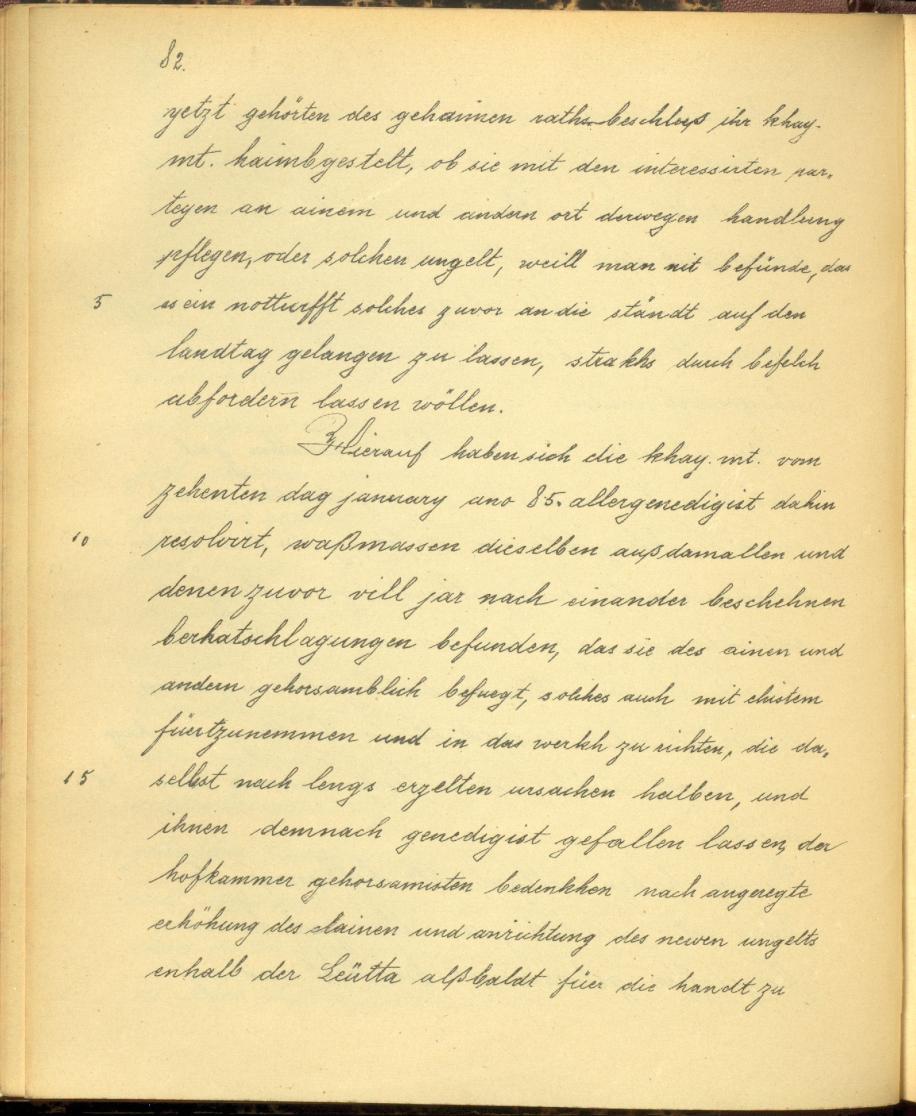 82.
yetzt gehörten des gehaimen raths beschluß ihr khay.
mt. haimbgestelt, ob sie mit den interessirten par-
teyen an ainem und andern ort derwegen handlung
pflegen, oder solchen ungelt, weill man nit befünde, das
5 es ein notturfft solches zuvor an die ständt auf den
landtag gelangen zu lassen, strakhs durch befelch
abfordern lassen wöllen.
Hierauf haben sich die khay. mt. vom
zehenten dag january ano 85. allergenedigist dahin
10 resolvirt, waßmassen dieselben auß damallen und
denen zuvor vill jar nach einander beschehnen
berhatschlagungen befunden, das sie des ainen und
andern gehorsamblich befuegt, solches auch mit ehistem
füertzunemmen und in das werkh zu richten, die da-
15 selbst nach lengs erzelten ursachen halben, und
ihnen demnach genedigist gefallen lassen, der
hofkammer gehorsamisten bedenkhen nach angeregte
erhöhung des ainen und anrichtung des newen ungelts
enhalb der Leütta alßbaldt füer die handt zu